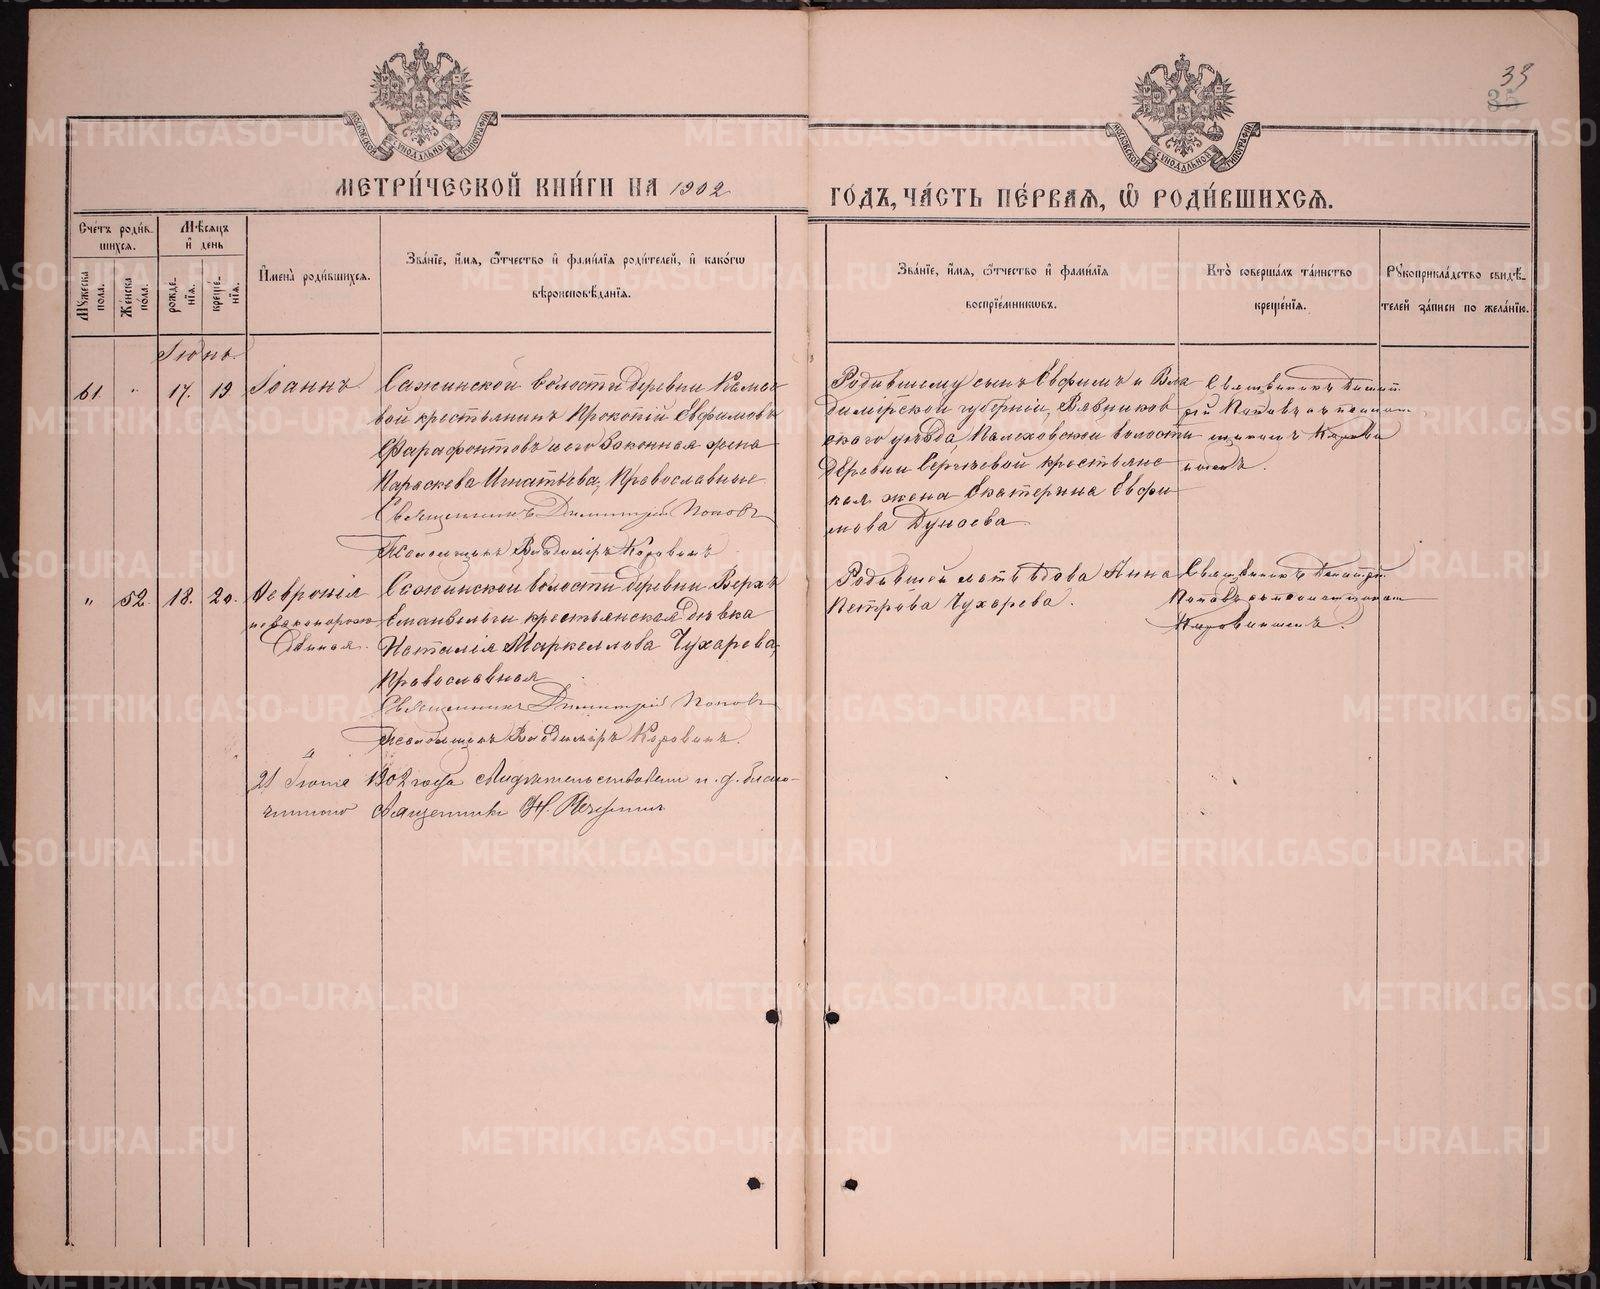 39
35
МОСКОВСКОЙ СѴНОДАЛЬНОЙ ТИПОГРАФІИ
МОСКОВСКОЙ СѴНОДАЛЬНОЙ ТИПОГРАФІИ
МЕТРИ́ЧЕСКОЙ КНИ́ГИ НА 1902
ГО́ДЪ, ЧА́СТЬ ПЕ́РВАѦ, Ѡ҆ РОДИ́ВШИХСѦ.
Сче́тъ роди́в-
шихсѧ.
Мѣ́сѧцъ
и҆ день
Мꙋ́жеска
пола.
Же́нска
по́ла.
рожде-
нїѧ.
креще́-
нїѧ.
И҆мена̀ роди́вшихсѧ.
Зва́нїе, и҆́мѧ, ѻ҆́тчество и҆ фами́лїѧ роди́телей, и҆ како́гѡ
вѣроисповѣ́данїѧ.
Зва́нїе, и҆́мѧ, ѻ҆́тчество и҆ фами́лїѧ
воспрїе́мникѡвъ.
Кто̀ соверша́лъ та́инство
креще́нїѧ.
Рꙋкоприкла́дство свидѣ́-
телей за́писи по жела́нїю.
Іюнь.
61. " 17. 19. Іоаннъ
Сажинской волости деревни Камы-
вой крестьянинъ Прокопій Евфимовъ
Фарафонтовъ и его законная жена
Параскева Игнатьева, Православные
Священникъ Димитрій Поповъ
Псаломщикъ Владиміръ Коровинъ
Родившему сынъ Евфимъ и Вла-
димірской губерніи, Вязников-
скаго уѣзда, Палеховской волости
деревни Сергеевой крестьянс-
кая жена Екатерина Евфи-
мова Дунаева
Священникъ Димит-
рій Поповъ съ псалом-
щикомъ Корови-
нымъ.
" 52 18. 20. Феврония
незаконорож-
денная.
Сажинской волости деревни Верхъ
Емаибельги крестьянская дѣвка
Наталія Маркеллова Чухарева,
Православная
Священникъ Димитрій Поповъ
Псаломщикъ Владиміръ Коровинъ.
Родившей мать вдова Анна
Петрова Чухарева.
Священникъ Димитрій
Поповъ съ псаломщикомъ
Коровинымъ.
21 Іюня 1902 года свидѣтельствовалъ и. д. благо-
чиннаго Священникъ Н.